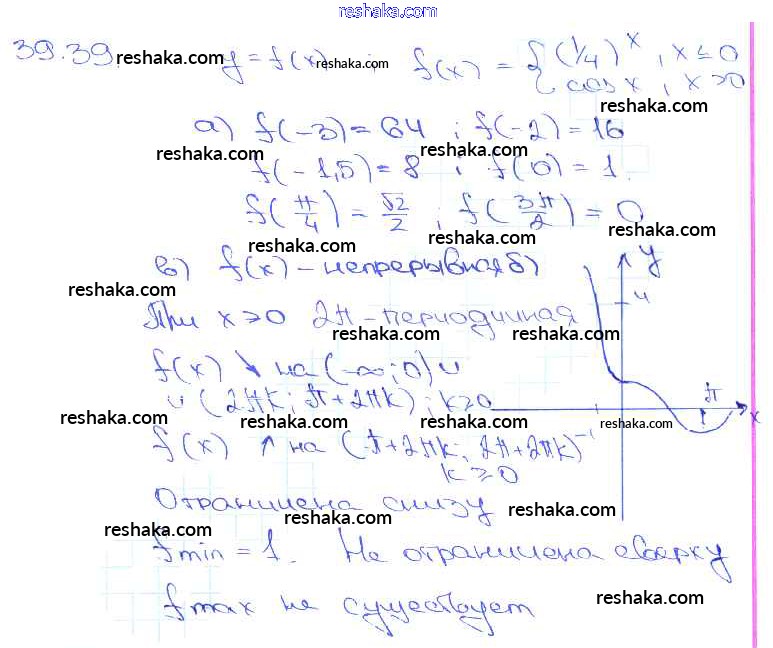 reshaka.com
39.39. reshaka.com y = f(x) reshaka.com ; f(x) = { (1/4)^x , x ≤ 0
cos x , x > 0
reshaka.com
а) f(-3) = 64 ; f(-2) = 16
reshaka.com reshaka.com
f(-1,5) = 8 ; f(0) = 1.
f(π/4) = √2/2 ; f(3π/2) = 0
reshaka.com reshaka.com
в) f(x) - непрерывная б) y
reshaka.com
4
При x > 0 2π - периодичная
reshaka.com reshaka.com
f(x) ↘ на (-∞; 0) ∪
∪ (2πk; π + 2πk) ; k ≥ 0
π
x
reshaka.com reshaka.com reshaka.com
f(x) ↑ на (π + 2πk; 2π + 2πk) -1
k ≥ 0
Ограничена снизу
reshaka.com reshaka.com reshaka.com
fmin = 1. Не ограничена сверху
fmax не существует
reshaka.com